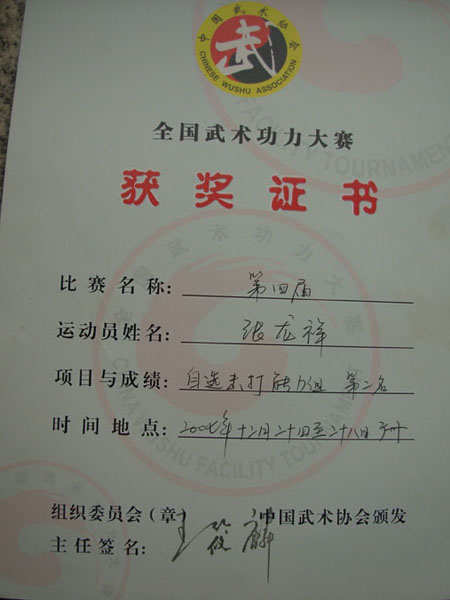 中国武术协会
武
CHINESE WUSHU ASSOCIATION
全国武术功力大赛
获奖证书
比赛名称: 第四届
运动员姓名: 张龙祥
项目与成绩: 自选 打 力 第二名
时间地点: 年十二月二十四至二十八日
组织委员会(章) 中国武术协会颁发
主任签名: 王筱麟
全国武术功力大赛
CHINA WUSHU FACILITY TOURNAMENT
FACILITY TOURNAMENT
WUSHU FACILITY TOURNAMENT